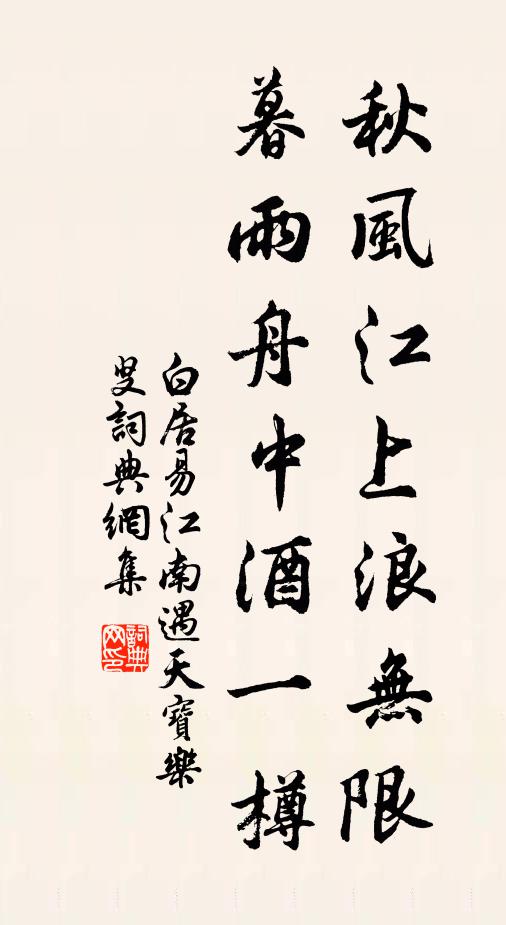 秋風江上浪無限
暮雨舟中酒一樽
白居易江南遇天寶樂
叟詞典網集
詞典